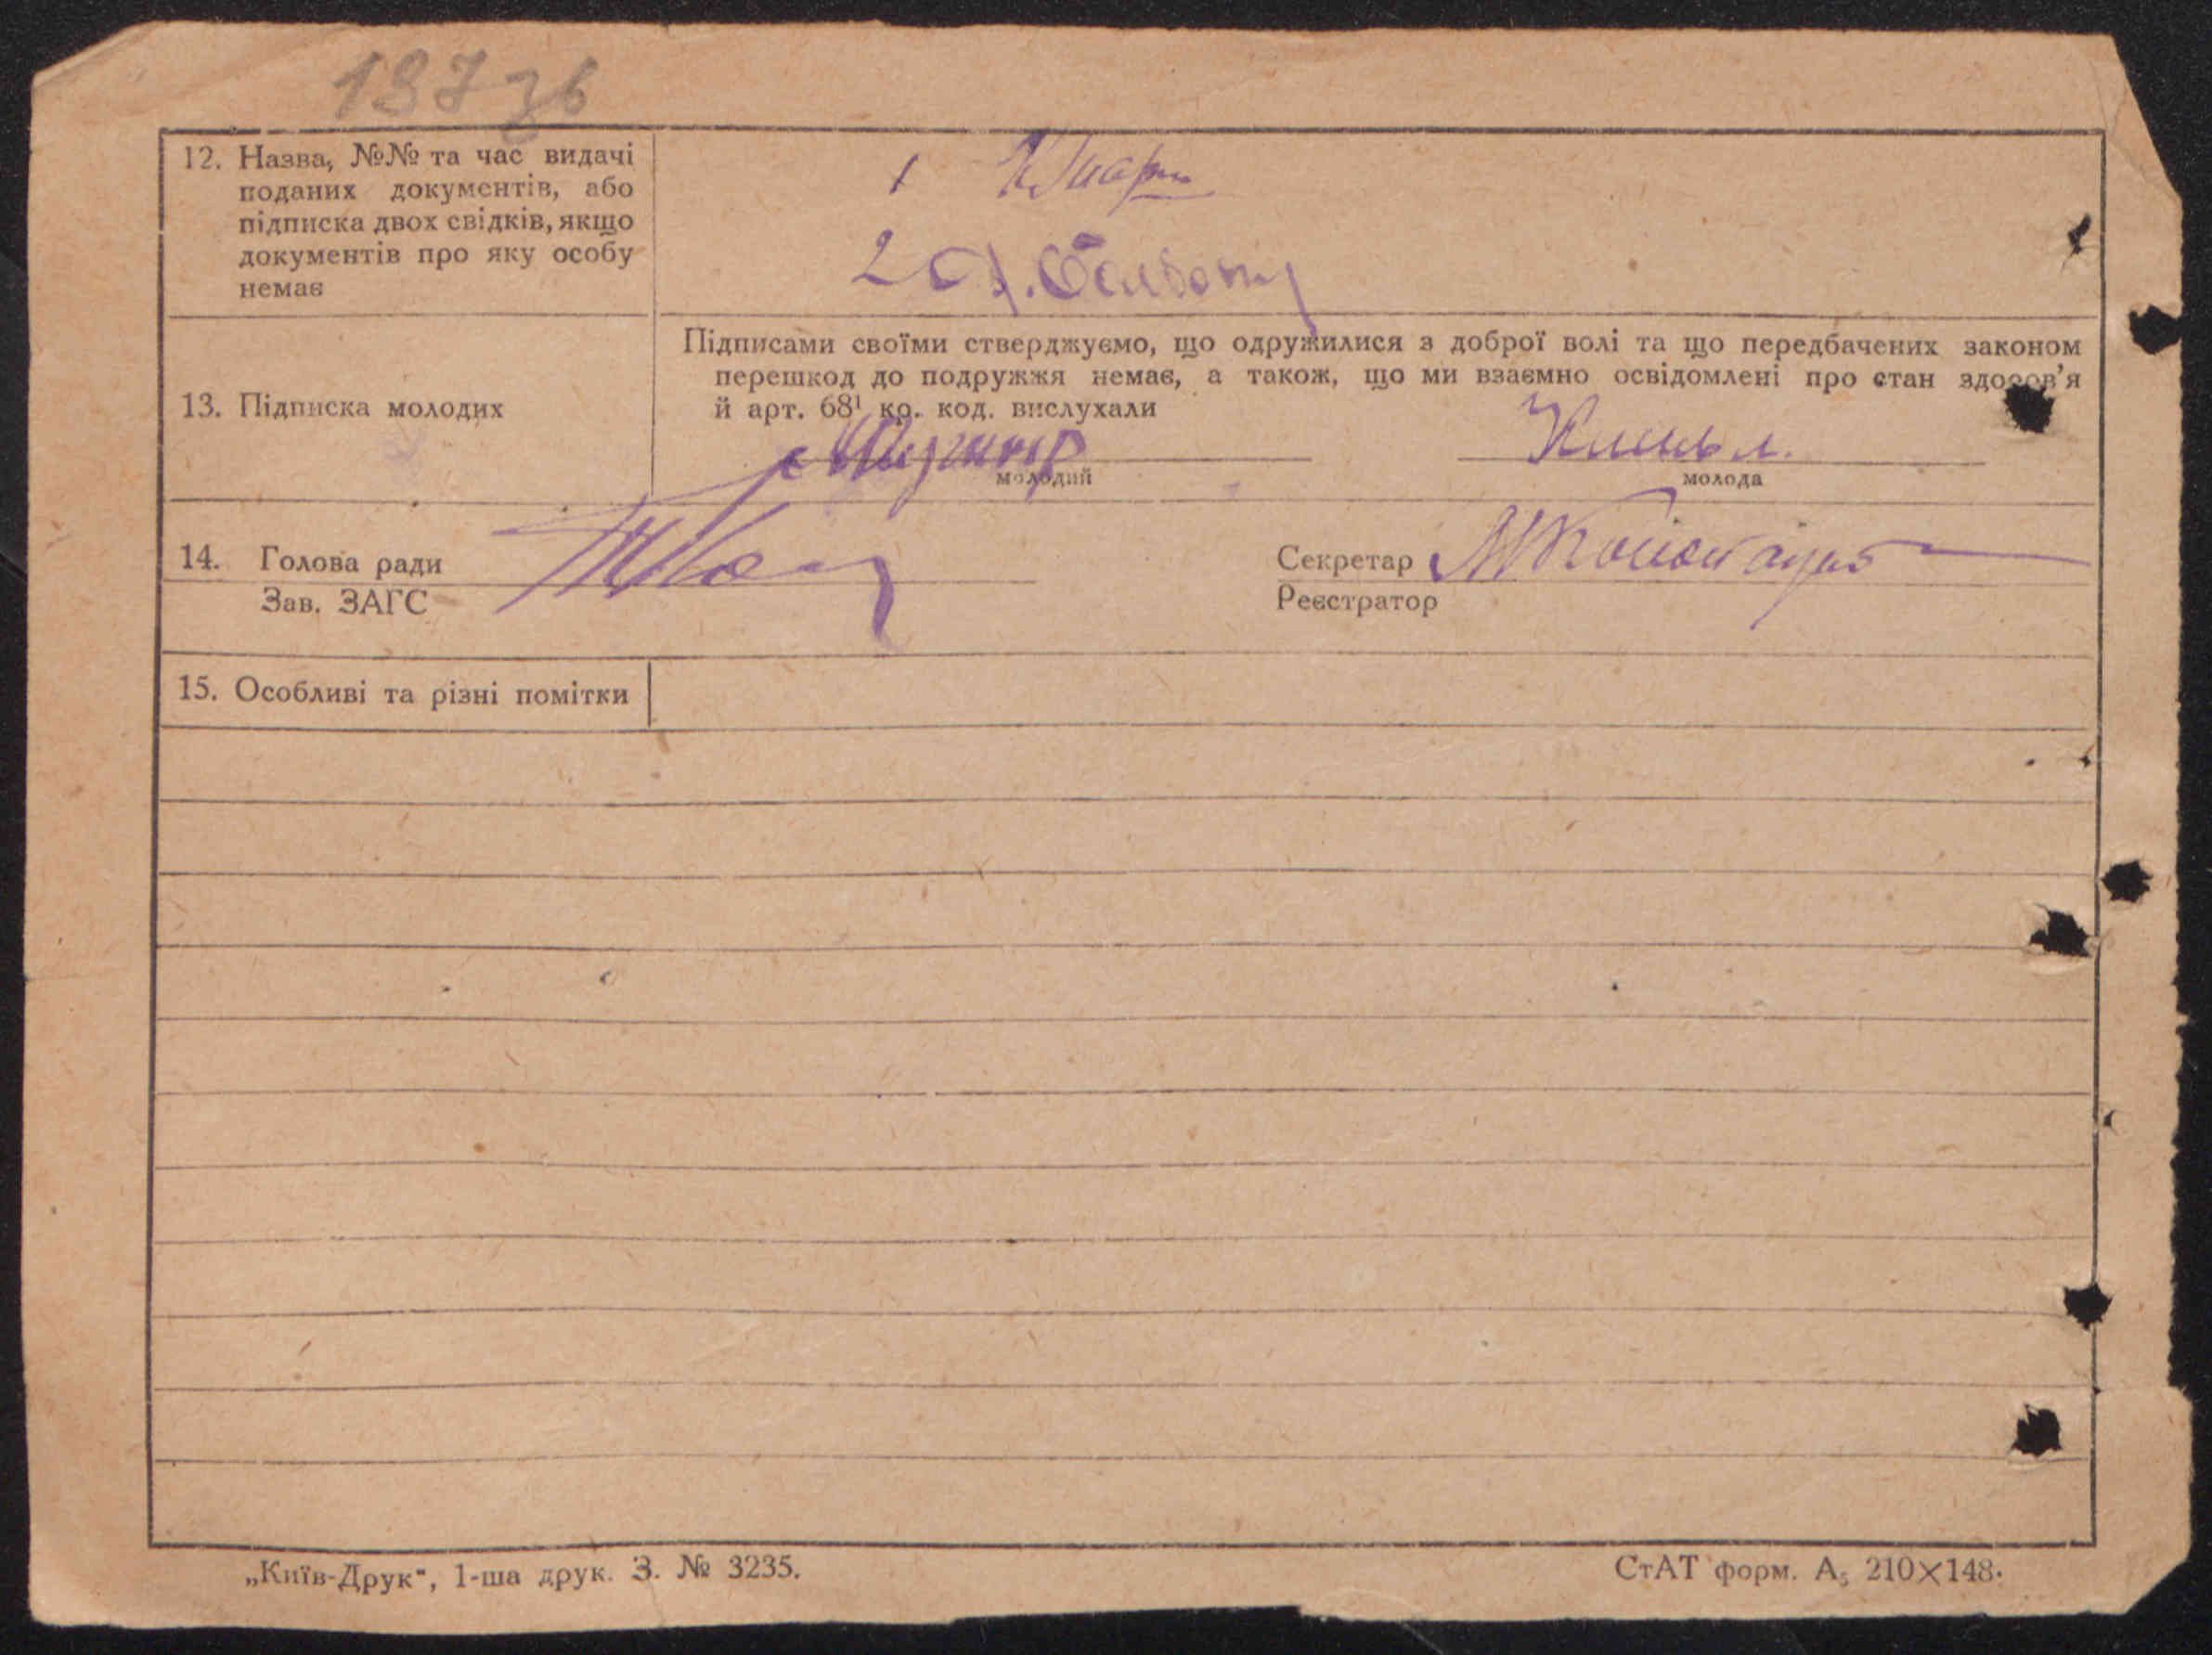 137 зв
12. Назва, №№ та час видачі
поданих документів, або
підписка двох свідків, якщо
документів про яку особу
немає
1
2
13. Підписка молодих
Підписами своїми стверджуємо, що одружилися з доброї волі та що передбачених законом
перешкод до подружжя немає, а також, що ми взаємно освідомлені про стан здоров'я
й арт. 68¹ кр. код. вислухали
молодий
молода
14. Голова ради
Зав. ЗАГС
Секретар
Реєстратор
15. Особливі та різні помітки
„Київ-Друк“, 1-ша друк. З. № 3235.
СтАТ форм. А₅ 210×148.